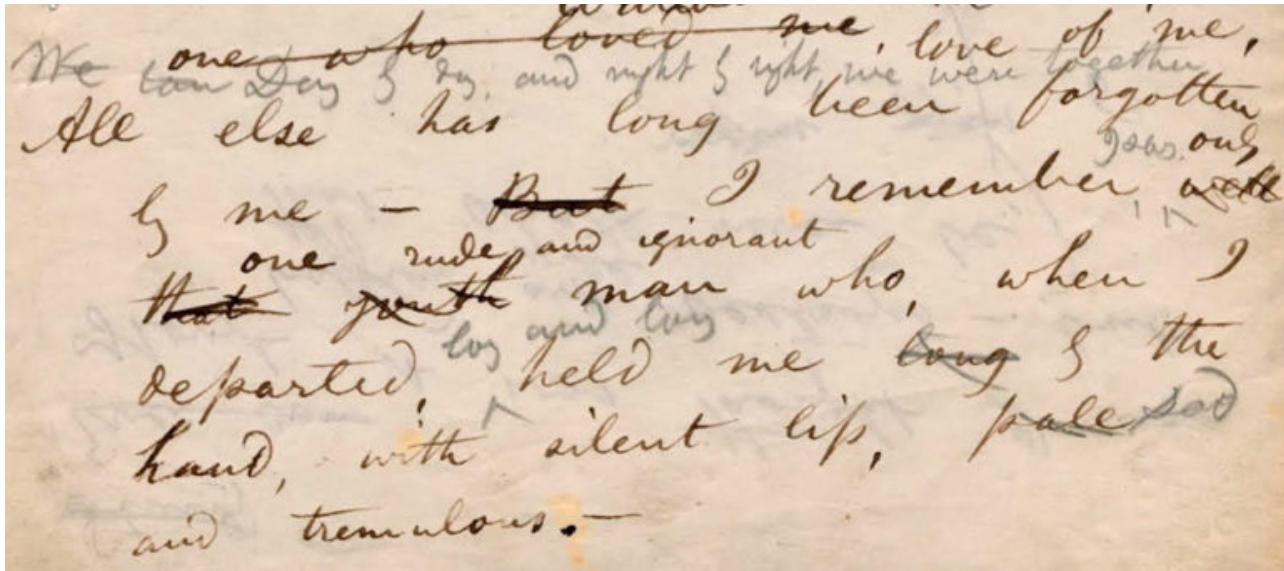 one who loved me, love of me,
We can Day by day, and night by night, we were together,
All else has long been forgotten
by me — But I remember, I say, only well
one rude and ignorant
that youth man who, when I
long and long
departed, held me long by the
hand, with silent lip, pale sad
and tremulous.—